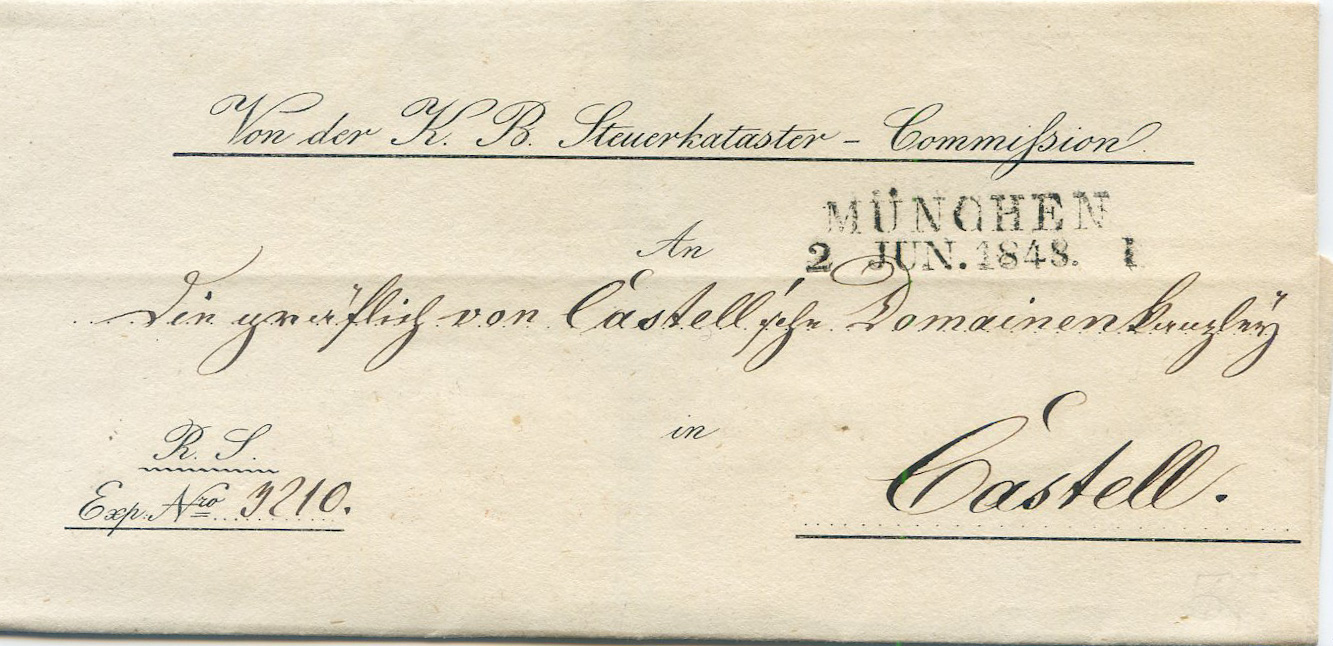 Von der K. B. Steuerkataster - Commiſsion
MÜNCHEN
2 JUN. 1848. I
An
Die gräflich von Castell'sche Domainenkanzleÿ
in
Castell.
R. S.
Exp: Nro 3210.